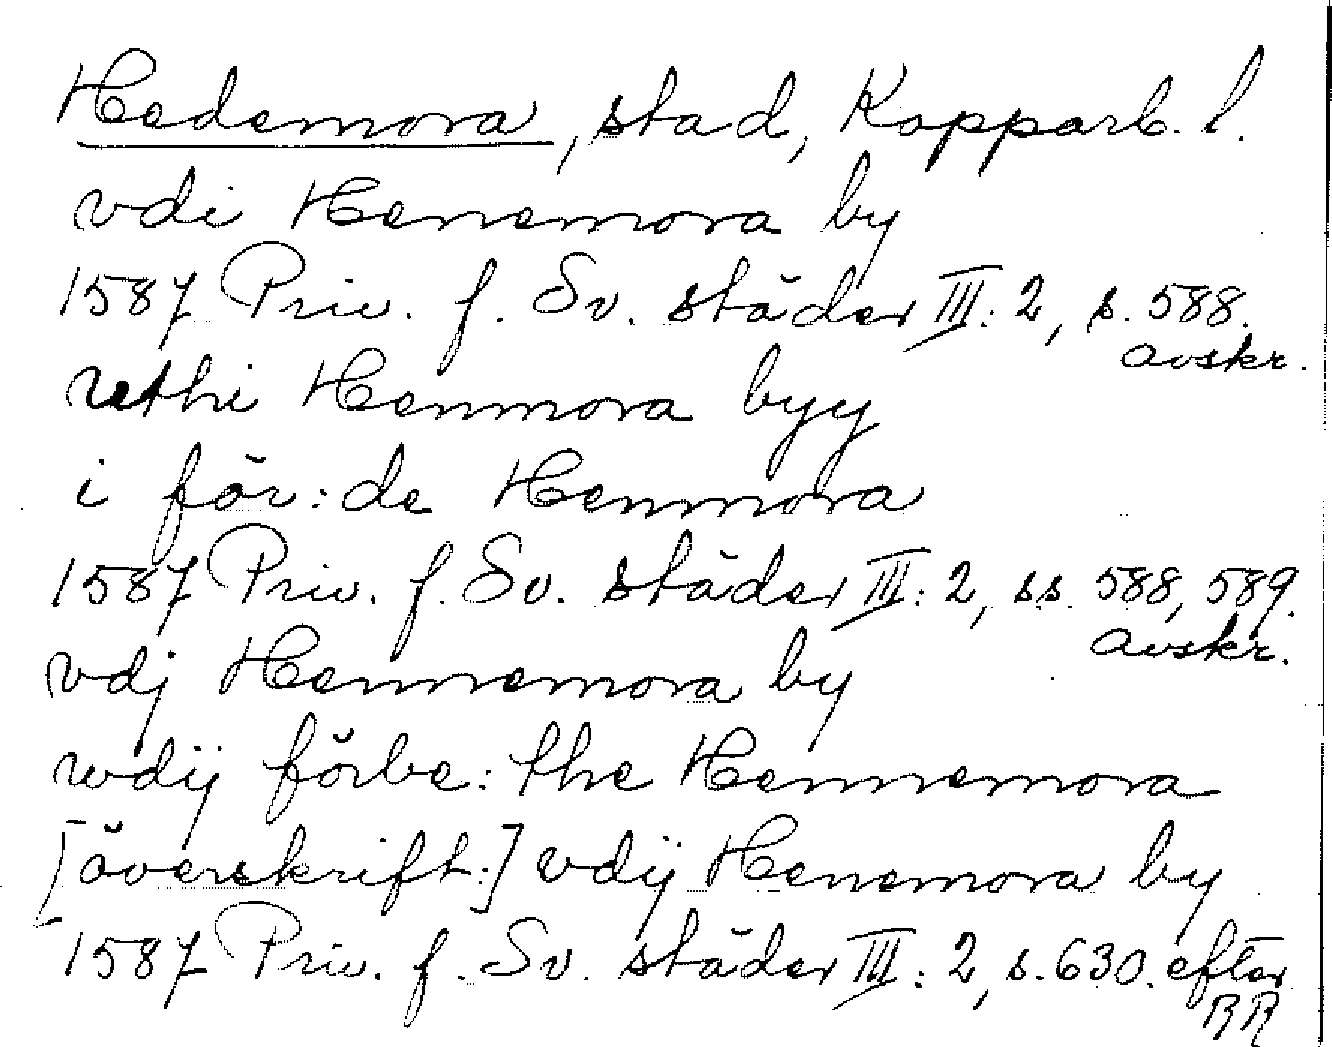 Hedemora, stad, Kopparb. l.
vdi Henemora by
1587 Priv. f. Sv. städer III: 2, s. 588.
avskr.
uthi Henmora byy
i för: de Henmora
1587 Priv. f. Sv. städer III: 2, ss. 588, 589.
avskr.
vdj Hennemora by
wdij förbe: the Hennemora
[överskrift:] vdij Henemora by
1587 Priv. f. Sv. städer III: 2, s. 630. efter
RR